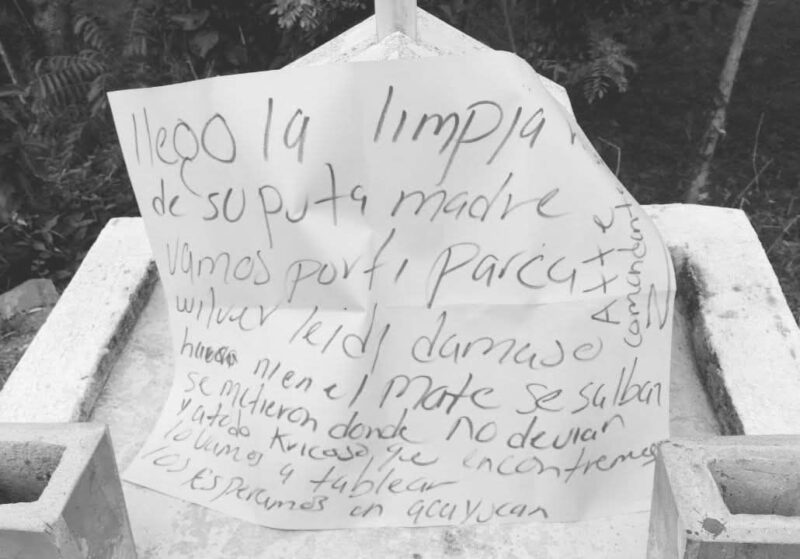 llego la limpia
de su puta madre
vamos porti parca
wilver leidi damaso
ni en el Mate se salban
se metieron donde no devian
y a todo kricoso qe encontremos
lo vamos a tablear
los esperamos en acayucan
Atte
comandante
Z